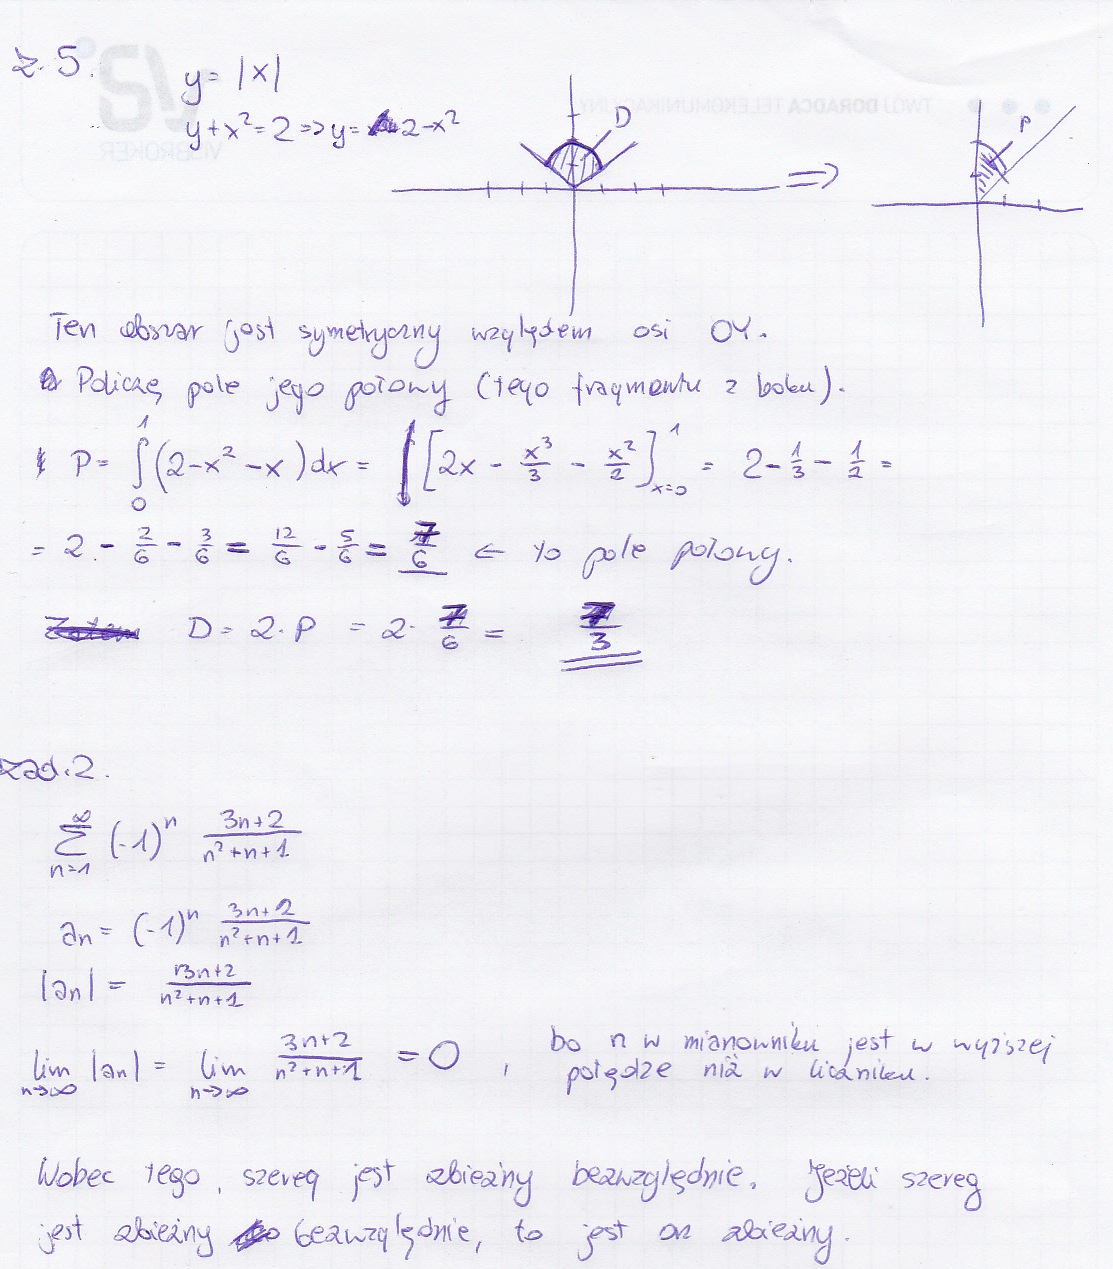 z. 5.
y = |x|
y + x² = 2 => y = 2 - x²
D
=>
P
Ten obszar jest symetryczny względem osi OY.
Policzę pole jego połowy (tego fragmentu z boku).
P = ∫₀¹ (2 - x² - x) dx = [2x - x³/3 - x²/2]¹ₓ₌₀ = 2 - 1/3 - 1/2 =
= 2 - 2/6 - 3/6 = 12/6 - 5/6 = 7/6 ← to pole połowy.
D = 2 · P = 2 · 7/6 = 7/3
zad. 2.
∑ₙ₌₁^∞ (-1)ⁿ (3n+2)/(n²+n+1)
aₙ = (-1)ⁿ (3n+2)/(n²+n+1)
|aₙ| = (3n+2)/(n²+n+1)
lim n→∞ |aₙ| = lim n→∞ (3n+2)/(n²+n+1) = 0, bo n w mianowniku jest w wyższej
potędze niż w liczniku.
Wobec tego, szereg jest zbieżny bezwzględnie. Jeżeli szereg
jest zbieżny bezwzględnie, to jest on zbieżny.